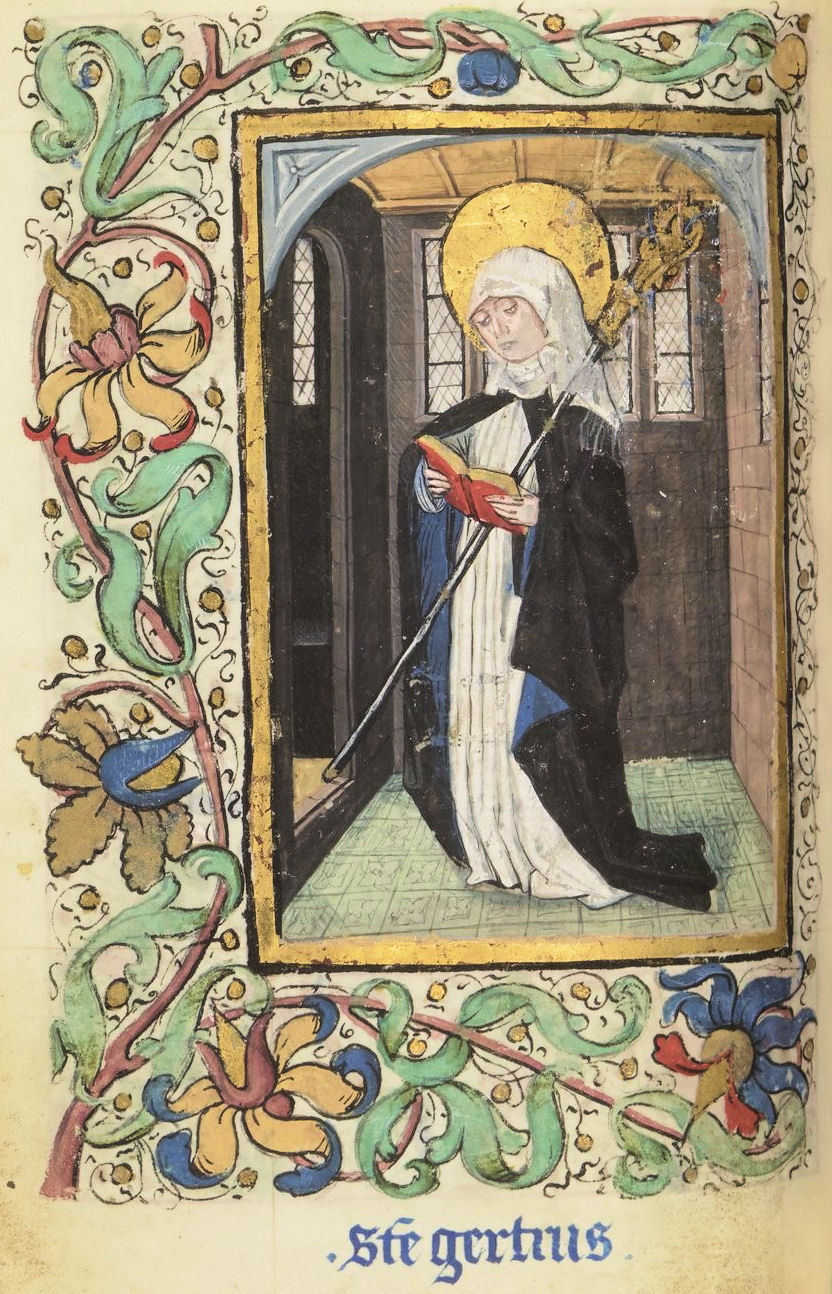 .Ste gertrus.